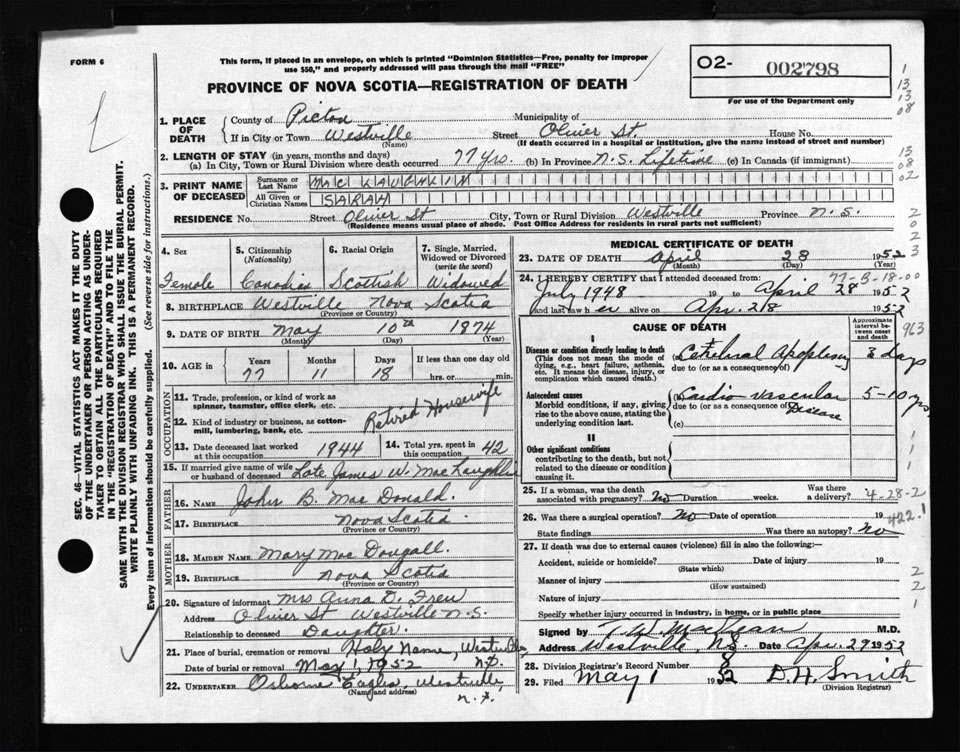 FORM 6
This form, if placed in an envelope, on which is printed "Dominion Statistics—Free, penalty for improper
use $50," and properly addressed will pass through the mail "FREE"
PROVINCE OF NOVA SCOTIA—REGISTRATION OF DEATH
O2- 002798
For use of the Department only
1. PLACE OF DEATH
County of Pictou Municipality of
If in City or Town Westville Street Oliver St. House No.
(Name) (If death occurred in a hospital or institution, give the name instead of street and number)
2. LENGTH OF STAY (in years, months and days)
(a) In City, Town or Rural Division where death occurred 77 yrs. (b) In Province N.S. Lifetime (c) In Canada (if immigrant)
3. PRINT NAME OF DECEASED
Surname or Last Name
All Given or Christian Names SARAH
RESIDENCE No. Street Oliver St City, Town or Rural Division Westville Province N.S.
(Residence means usual place of abode. Post Office Address for residents in rural parts not sufficient)
4. Sex 5. Citizenship (Nationality) 6. Racial Origin 7. Single, Married, Widowed or Divorced (write the word)
Female Canadian Scottish Widowed
8. BIRTHPLACE Westville Nova Scotia
(Province or Country)
9. DATE OF BIRTH May 10th 1874
(Month) (Day) (Year)
10. AGE in Years Months Days If less than one day old
77 11 18 hrs. or min.
OCCUPATION
11. Trade, profession, or kind of work as
spinner, teamster, office clerk, etc.
12. Kind of industry or business, as cotton-
mill, lumbering, bank, etc.
Retired Housewife
13. Date deceased last worked at this occupation 1944 14. Total yrs. spent in this occupation 42
15. If married give name of wife or husband of deceased Late James W. MacLaughlin
FATHER
16. NAME John B. MacDonald.
17. BIRTHPLACE Nova Scotia
(Province or Country)
MOTHER
18. MAIDEN NAME Mary MacDougall.
19. BIRTHPLACE Nova Scotia
(Province or Country)
20. Signature of informant Mrs Anna D. Frew
Address Oliver St Westville N.S.
Relationship to deceased Daughter.
21. Place of burial, cremation or removal Holy Name, Westville, N.S.
Date of burial or removal May 1, 1952
22. UNDERTAKER Osborne Eagles, Westville, N.S.
(Name and address)
MEDICAL CERTIFICATE OF DEATH
23. DATE OF DEATH April 28 1952
(Month) (Day) (Year)
77-B-18-00
24. I HEREBY CERTIFY that I attended deceased from:
July 1948 19 to April 28 1952
and last saw her alive on Apr. 28 1952
CAUSE OF DEATH
Approximate interval between onset and death
I
Disease or condition directly leading to death
(This does not mean the mode of
dying, e.g., heart failure, asthenia,
etc. It means the disease, injury, or
complication which caused death.)
Cerebral Apoplexy 3 days
due to (or as a consequence of)
Antecedent causes
Morbid conditions, if any, giving
rise to the above cause, stating the
underlying condition last.
Cardio Vascular Disease 5-10 yrs
due to (or as a consequence of)
(c)
II
Other significant conditions
contributing to the death, but not
related to the disease or condition
causing it.
25. If a woman, was the death associated with pregnancy? No Duration weeks. Was there a delivery? 4-28-2
26. Was there a surgical operation? No Date of operation 19
422.1
State findings Was there an autopsy? No
27. If death was due to external causes (violence) fill in also the following:—
Accident, suicide or homicide? Date of injury 19
(State which)
Manner of injury
(How sustained)
Nature of injury
Specify whether injury occurred in industry, in home, or in public place
Signed by M.D.
Address Westville, N.S. Date Apr. 29 1952
28. Division Registrar's Record Number 8
29. Filed May 1 1952 D.H. Smith
(Division Registrar)
SEC. 46—VITAL STATISTICS ACT MAKES IT THE DUTY
OF THE UNDERTAKER OR PERSON ACTING AS UNDER-
TAKER TO OBTAIN ALL THE PARTICULARS REQUIRED
IN THE "REGISTRATION OF DEATH" AND TO FILE THE
SAME WITH THE DIVISION REGISTRAR WHO SHALL ISSUE THE BURIAL PERMIT.
WRITE PLAINLY WITH UNFADING INK. THIS IS A PERMANENT RECORD.
Every item of information should be carefully supplied. (See reverse side for instructions.)
1
13
13
08
13
08
02
2
0
2
2
3
963
1
1
2
2
1